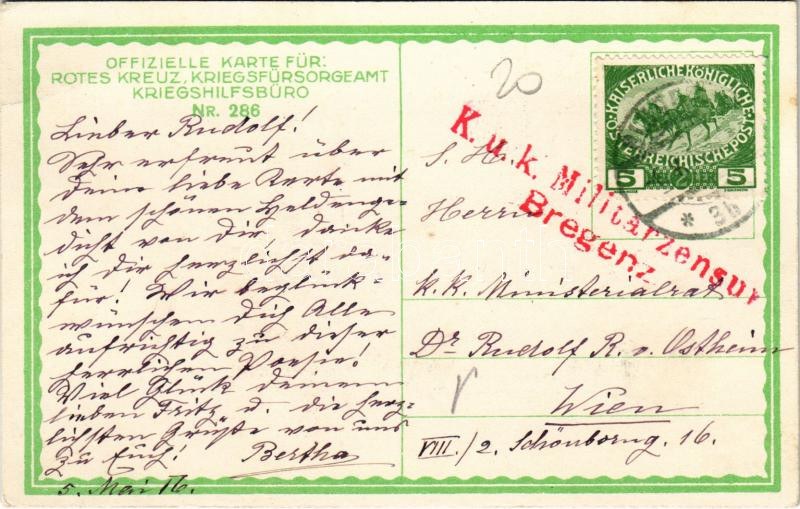 OFFIZIELLE KARTE FÜR:
ROTES KREUZ, KRIEGSFÜRSORGEAMT
KRIEGSHILFSBÜRO
NR. 286
Lieber Rudolf!
Sehr erfreut über
Deine liebe Karte mit
dem schönen Heldenge-
dicht von Dir, danke
ich Dir herzlichst da-
für! Wir beglück-
wünschen Dich Alle
aufrichtig zu dieser
herrlichen Poesie!
Viel Glück deinem
lieben Fritz u. die herz-
lichsten Grüße von uns
zu Euch! Bertha
5. Mai 16.
20
KAISERLICHEKÖNIGLICHE
ÖSTERREICHISCHEPOST
5 5
K. u. k. Militärzensur
Bregenz
S. H.
Herrn
K. K. Ministerialrat
Dr Rudolf R. v. Ostheim
Wien
VIII./2. Schönborng. 16.